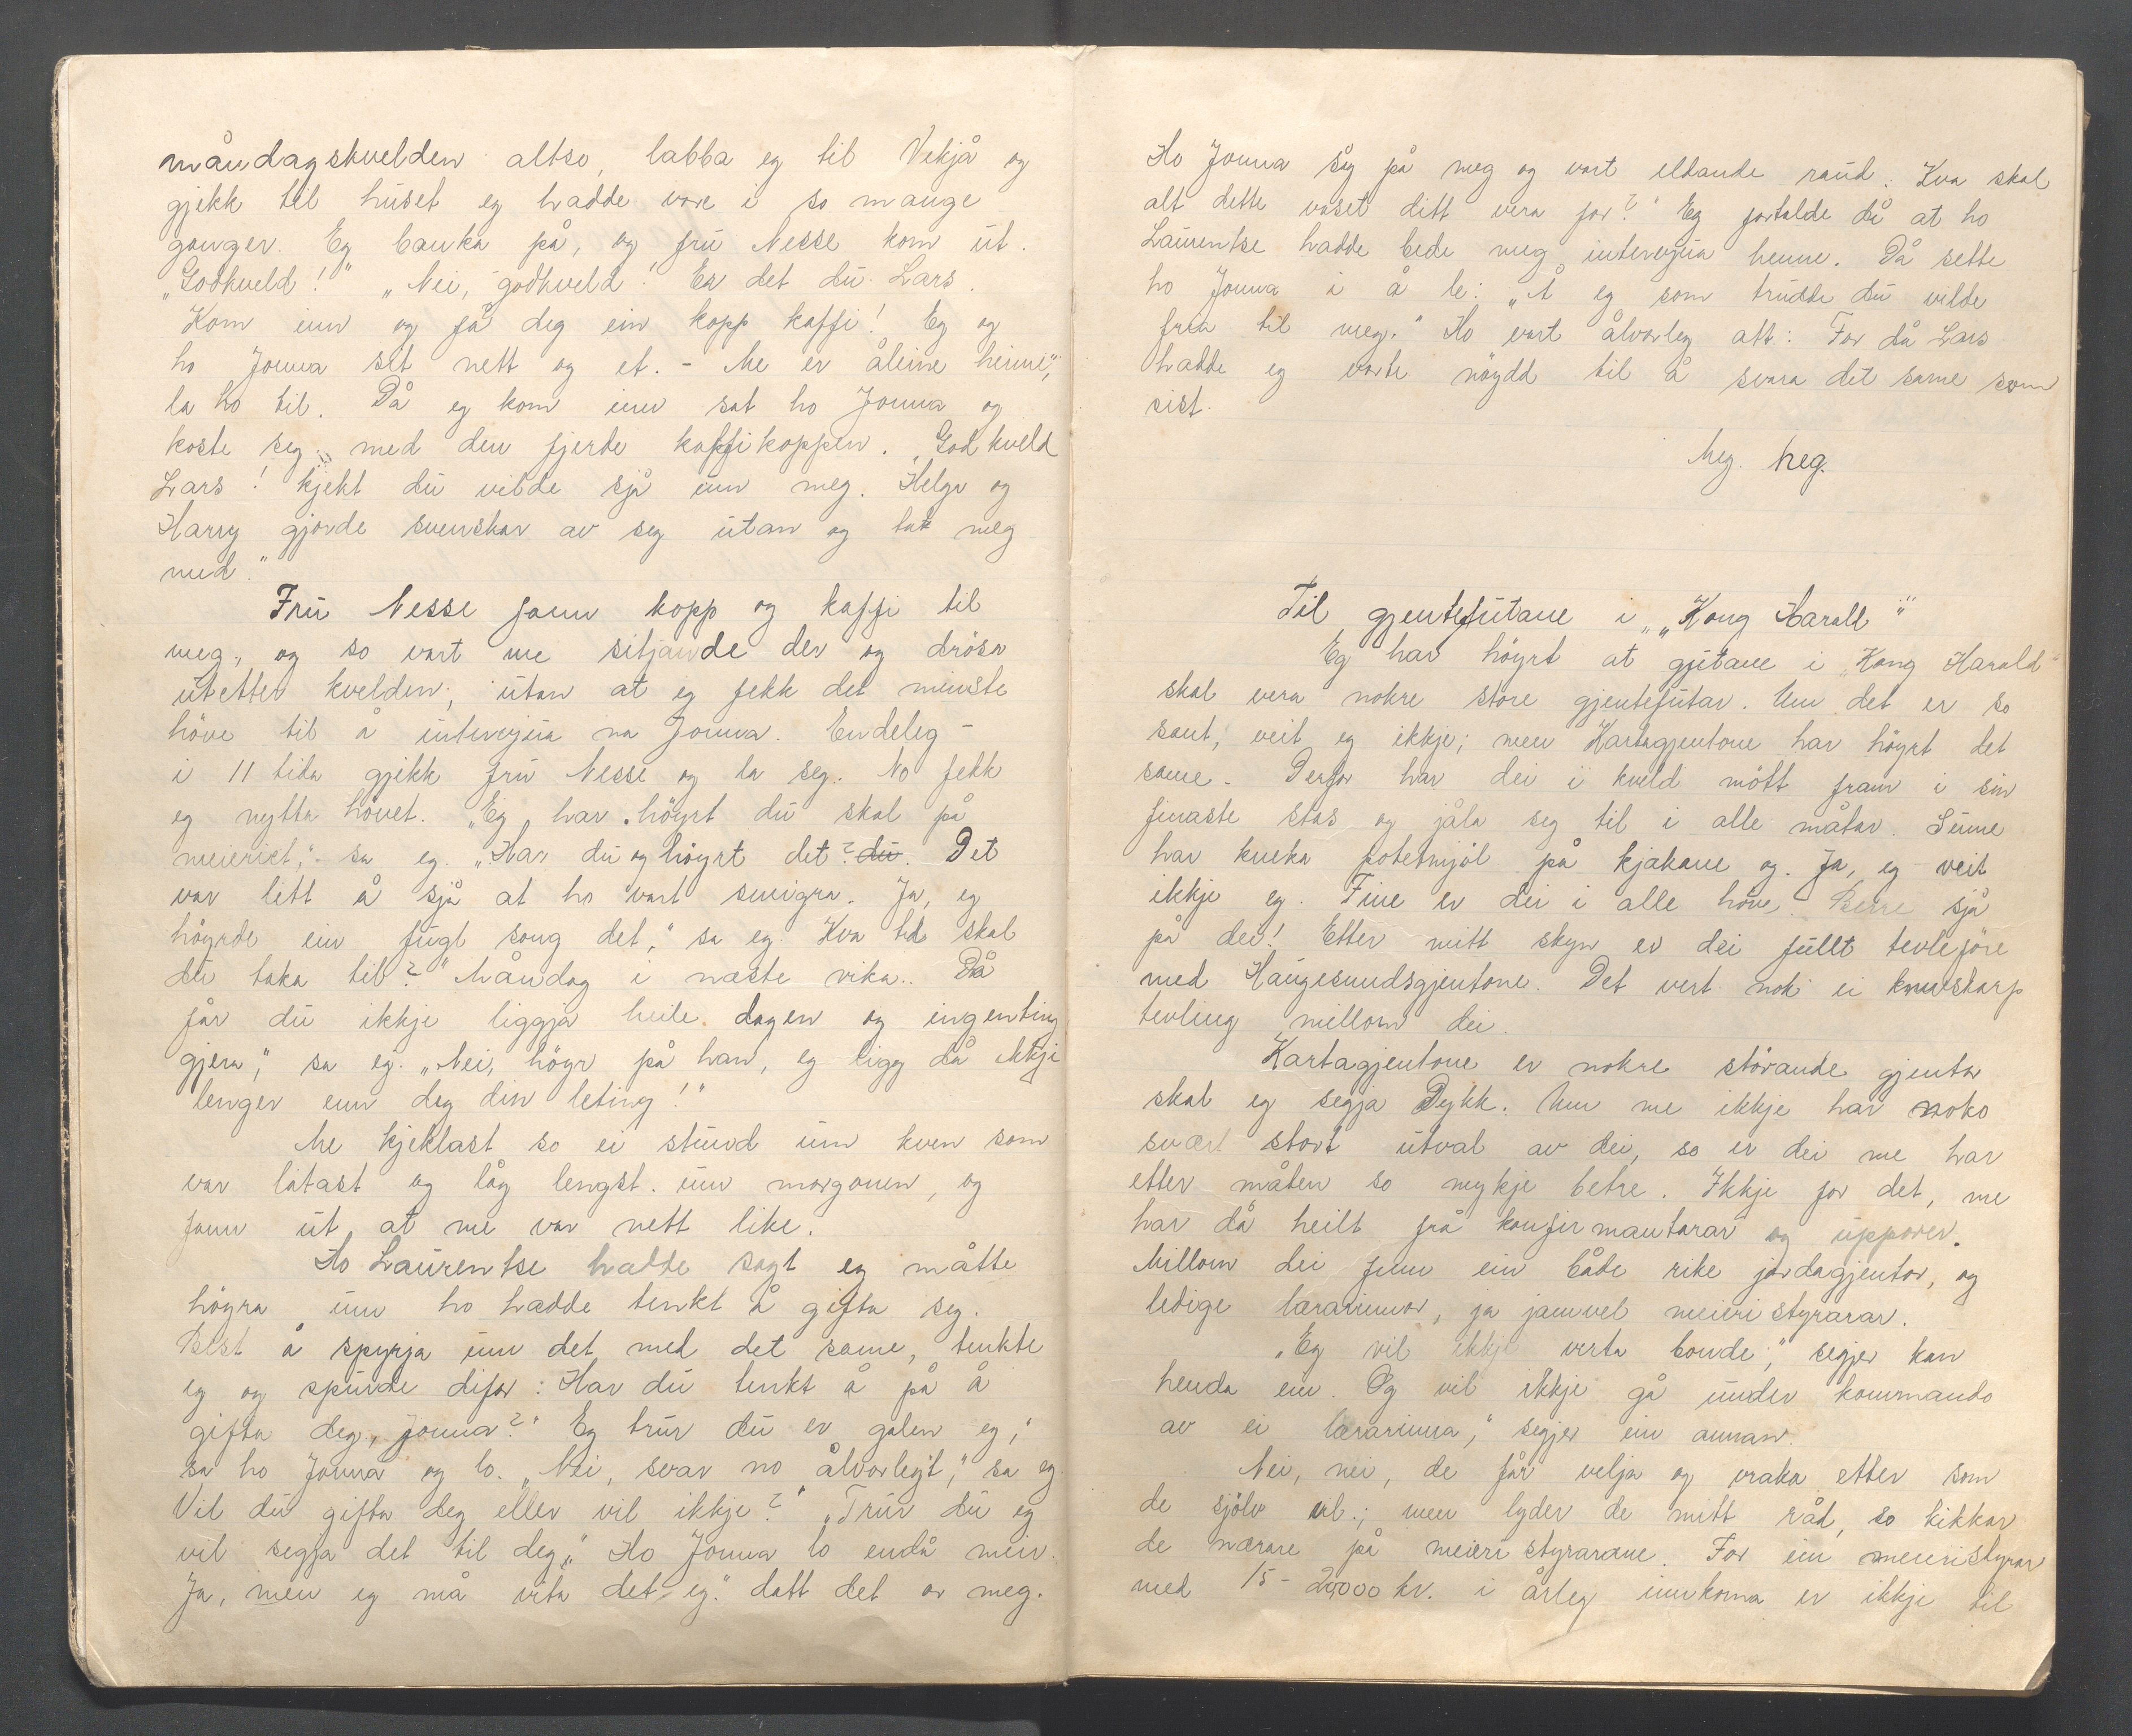 måndagskvelden altso, labba eg til Vikjå og
gjekk til huset eg hadde vore i so mange
gonger. Eg banka på, og fru Nesse kom ut.
„Godkveld!" „Nei, godkveld! Er det du Lars.
Kom inn og få deg ein kopp kaffi! Eg og
ho Jonna sit nett og et. - Me er åleine heime",
la ho til. Då eg kom inn sat ho Jonna og
koste seg med den fjerde kaffikoppen. „God kveld
Lars! kjekt du vilde sjå um meg. Helga og
Harry gjorde svenskar av seg utan og tok meg
med."
Fru Nesse fann kopp og kaffi til
meg, og so vart me sitjande der og drösa
utetter kvelden, utan at eg fekk det minste
höve til å intervjua na Jonna. Endeleg -
i 11 tida gjekk fru Nesse og la seg. No fekk
eg nytta hövet. „Eg har höyrt du skal på
meieriet," sa eg. „Har du og höyrt det? du. Det
var lett å sjå at ho vart smigra. Ja, eg
höyrde ein fugl song det," sa eg. Kva tid skal
du taka til?" Måndag i næste vika.. Då
får du ikkje liggja heile dagen og ingenting
gjera," sa eg. „Nei, höyr på han, eg ligg då ikkje
lenger enn deg din leting!"
Me kjeklast so ei stund um kven som
var latast og låg lengst um morgonen, og
fann ut at me var nett like.
Ho Laurentse hadde sagt eg måtte
höyra um ho hadde tenkt å gifta seg.
Best å spyrja um det med det same, tenkte
eg og spurde difor: Har du tenkt å på å
gifta deg, Jonna?" Eg trur du er galen eg,"
sa ho Jonna og lo. „Nei, svar no ålvorlegt," sa eg.
Vil du gifta deg eller vil ikkje?" „Trur du eg
vil segja det til deg," Ho Jonna lo endå meir.
Ja, men eg må vita det eg." datt det or meg.
Ho Jonna såg på meg og vart eldande raud. Kva skal
alt dette vaset ditt vera for?" Eg fortalde då at ho
Laurentse hadde bede meg intervjua henne. Då sette
ho Jonna i å le: „Å eg som trudde du vilde
fria til meg." Ho vart ålvorleg att: For då Lars
hadde eg vorte nöydd til å svara det same som
sist.
Meg. heg.
Til gjentefutane i „Kong Harald"
Eg har höyrt at gutane i „Kong Harald"
skal vera nokre store gjentefutar. Um det er so
sant, veit eg ikkje; men Kartagjentone har höyrt det
same. Derfor har dei i kveld mött fram i sin
finaste stas og jåla seg til i alle måtar. Sume
har kneka potetmjöl på kjakane og. Ja, eg veit
ikkje eg. Fine er dei i alle höve. Berre sjå
på dei! Etter mitt skyn er dei fullt tevleföre
med Haugesundsgjentone. Det vert nok ei knivskarp
tevling millom dei.
Kartagjentone er nokre störande gjentor
skal eg segja Dykk. Um me ikkje har noko
svært stort utval av dei, so er dei me har
etter måten so mykje betre. Ikkje for det, me
har då heilt frå konfirmantarar og uppover.
Millom dei finn ein både rike jordagjentor, og
ledige lærarinnor, ja jamvel meieristyrarar.
„Eg vil ikkje verta bonde," segjer kan
henda ein. Og vil ikkje gå under kommando
av ei lærarinna," segjer ein annan.
Nei, nei, de får velja og vraka etter som
de sjölv vil; men lyder de mitt råd, so kikkar
de nærare på meieristyrarane. For ein meieristyrar
med 15 - 20,000 kr. i årleg innkoma er ikkje til